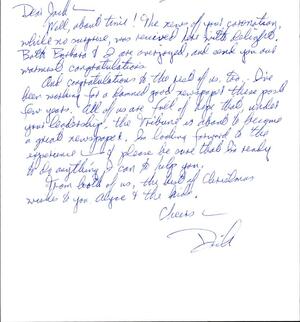 Dear Jack —
Well, about time! The news of your coronation,
while no surprise, was received here with delight.
Both Barbara & I are overjoyed, and send you our
warmest congratulations.
And congratulations to the rest of us, too. I've
been working for a damned good newspaper these past
few years. All of us are full of hope that, under
your leadership, the Tribune is about to become
a great newspaper. I'm looking forward to the
experience — & please be sure that I'm ready
to do anything I can to help you.
From both of us, the best of Christmas
wishes to you & the kids.
Cheers —
Dick